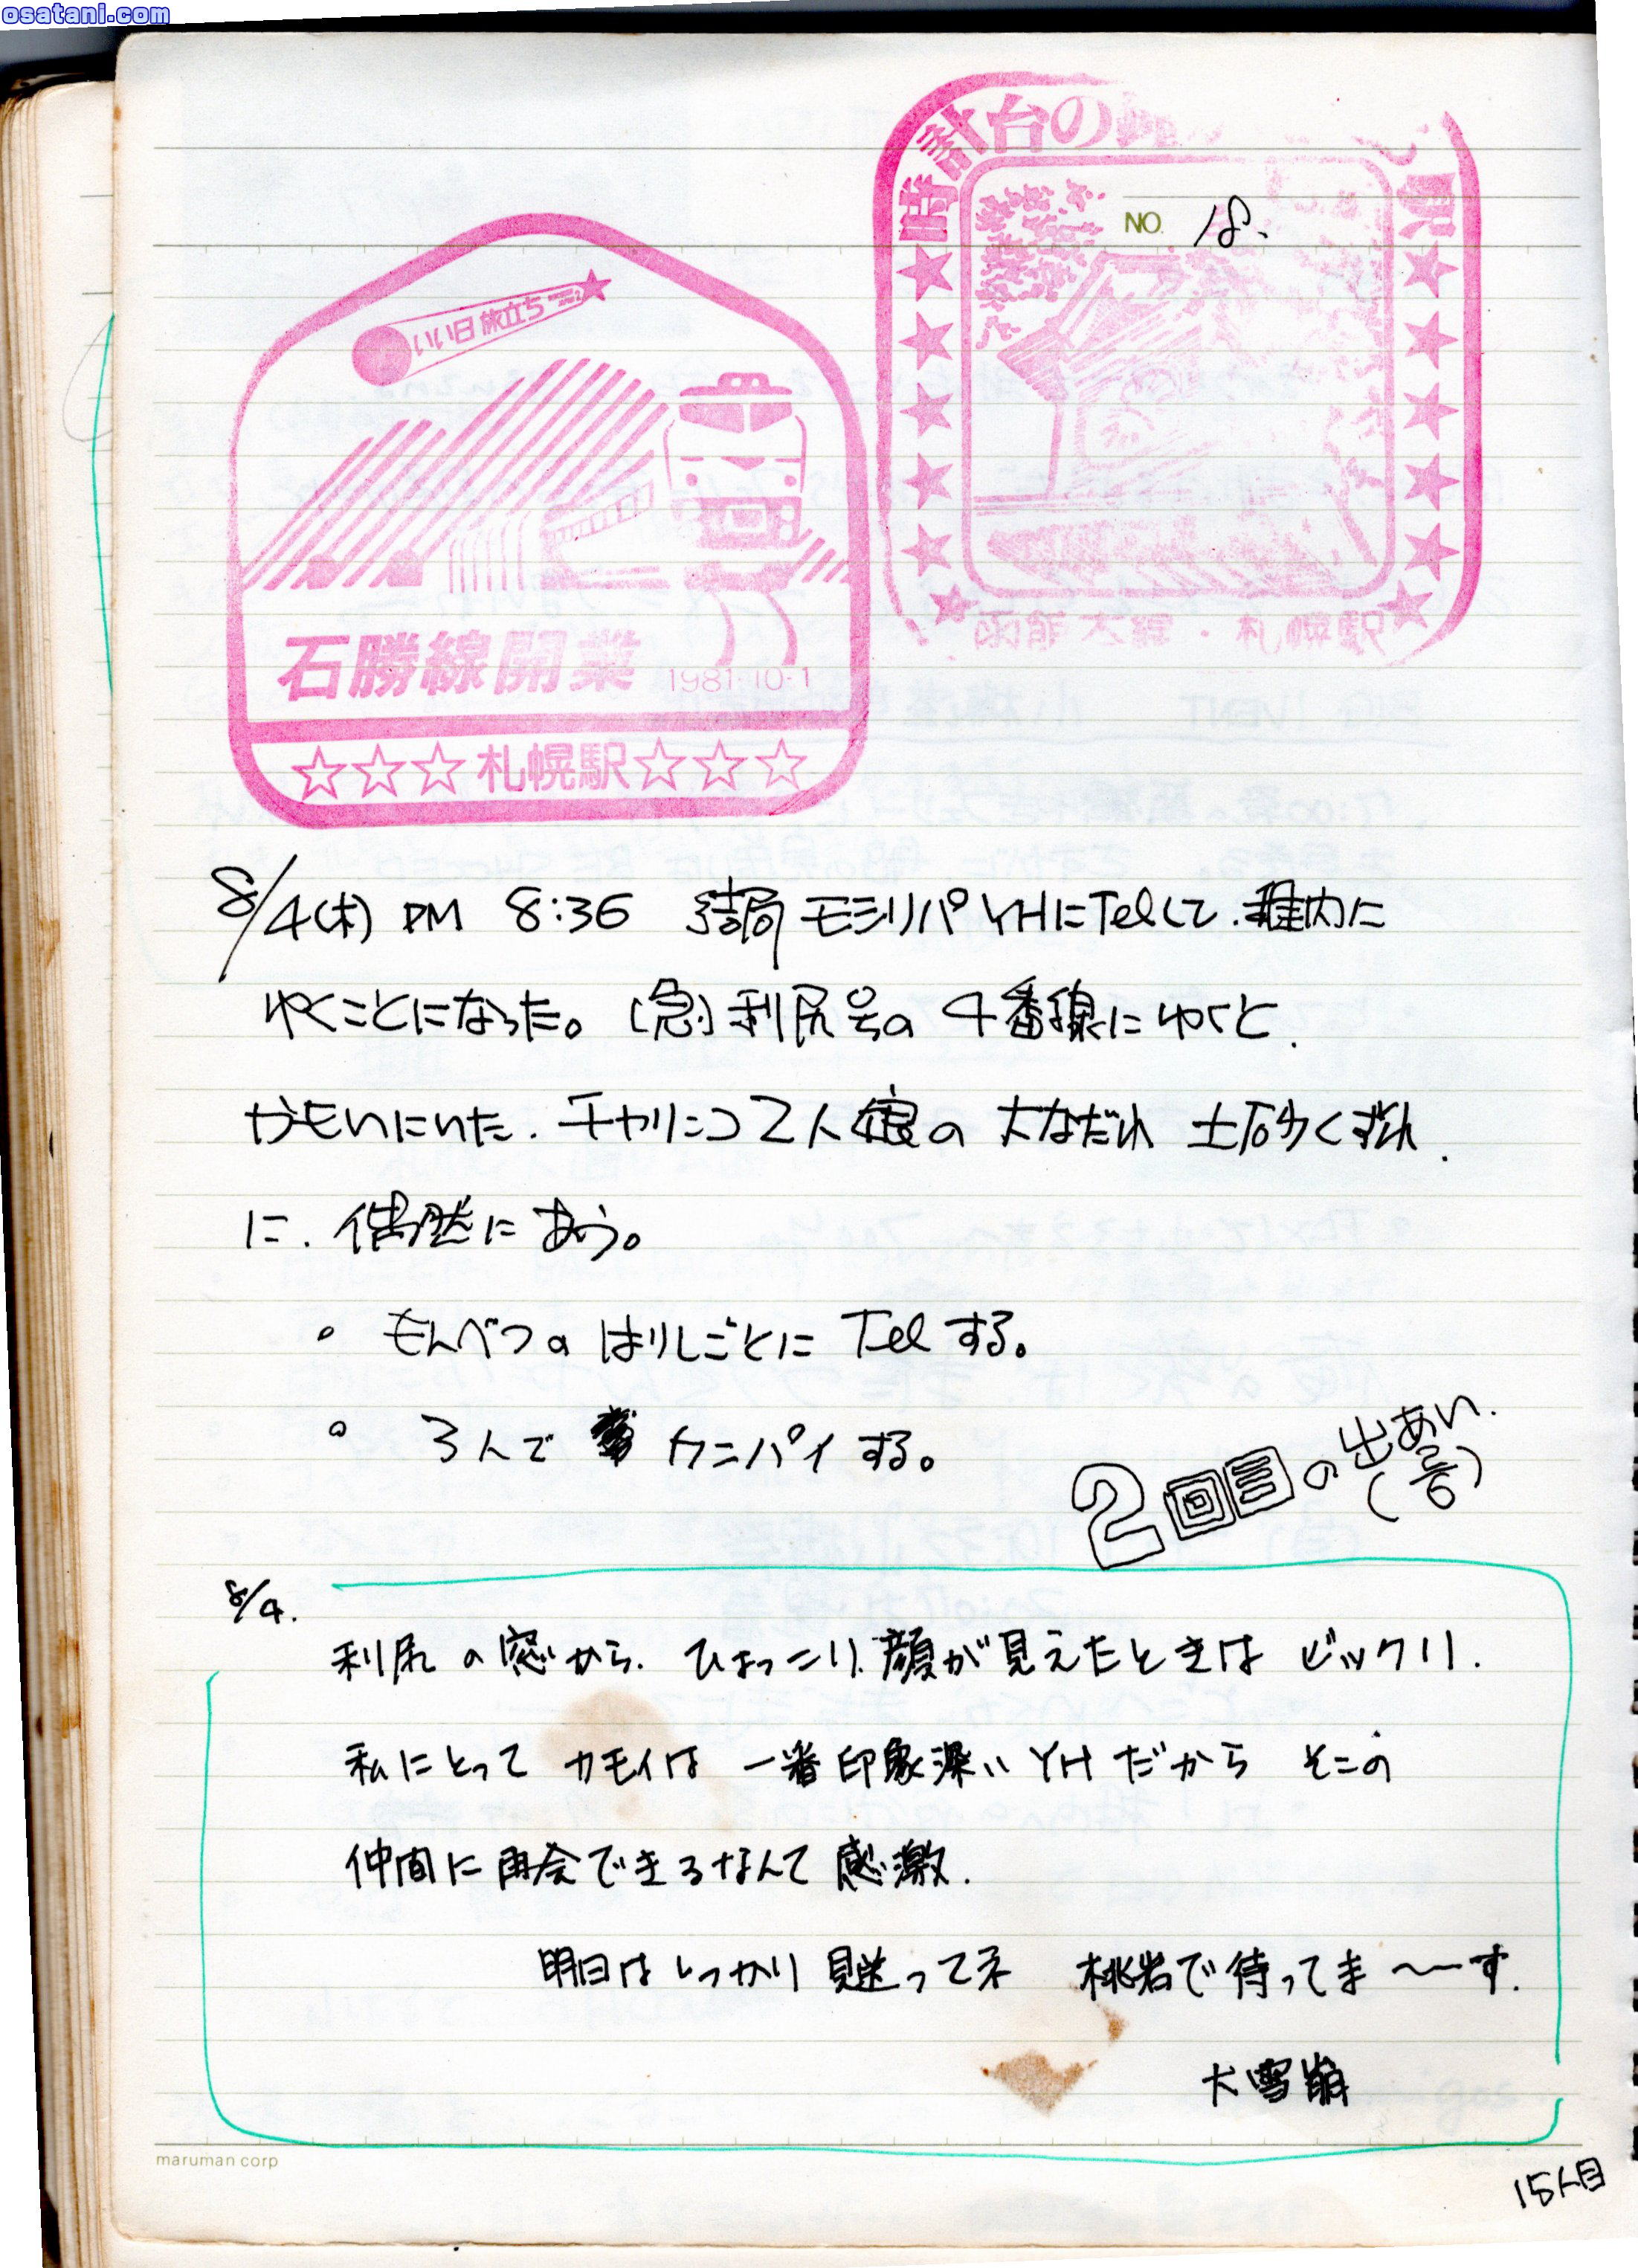 osatani.com
時計台の
駅
NO. 18.
いい日旅立ち
石勝線開業 1981・10・1
☆☆☆札幌駅☆☆☆
★函館本線・札幌駅★
8/4(木) PM 8:36 結局 モシリパYHにTelして、稚内に
ゆくことになった。(急)利尻号の 4番線にゆくと、
かもいにいた、チャリンコ2人娘の 大なだれ 土砂くずれ、
に、偶然にあう。
• もんべつの はりしごとに Tel する。
• 3人で カンパイする。
2回目の出あい.
8/4.
利尻の窓から、ひょっこり、顔が見えたときは ビックリ.
私にとって カモイは 一番印象深いYHだから そこの
仲間に再会できるなんて 感激.
明日はしっかり見送ってネ 桃岩で待ってま〜〜す.
大雪崩
maruman corp
15人目